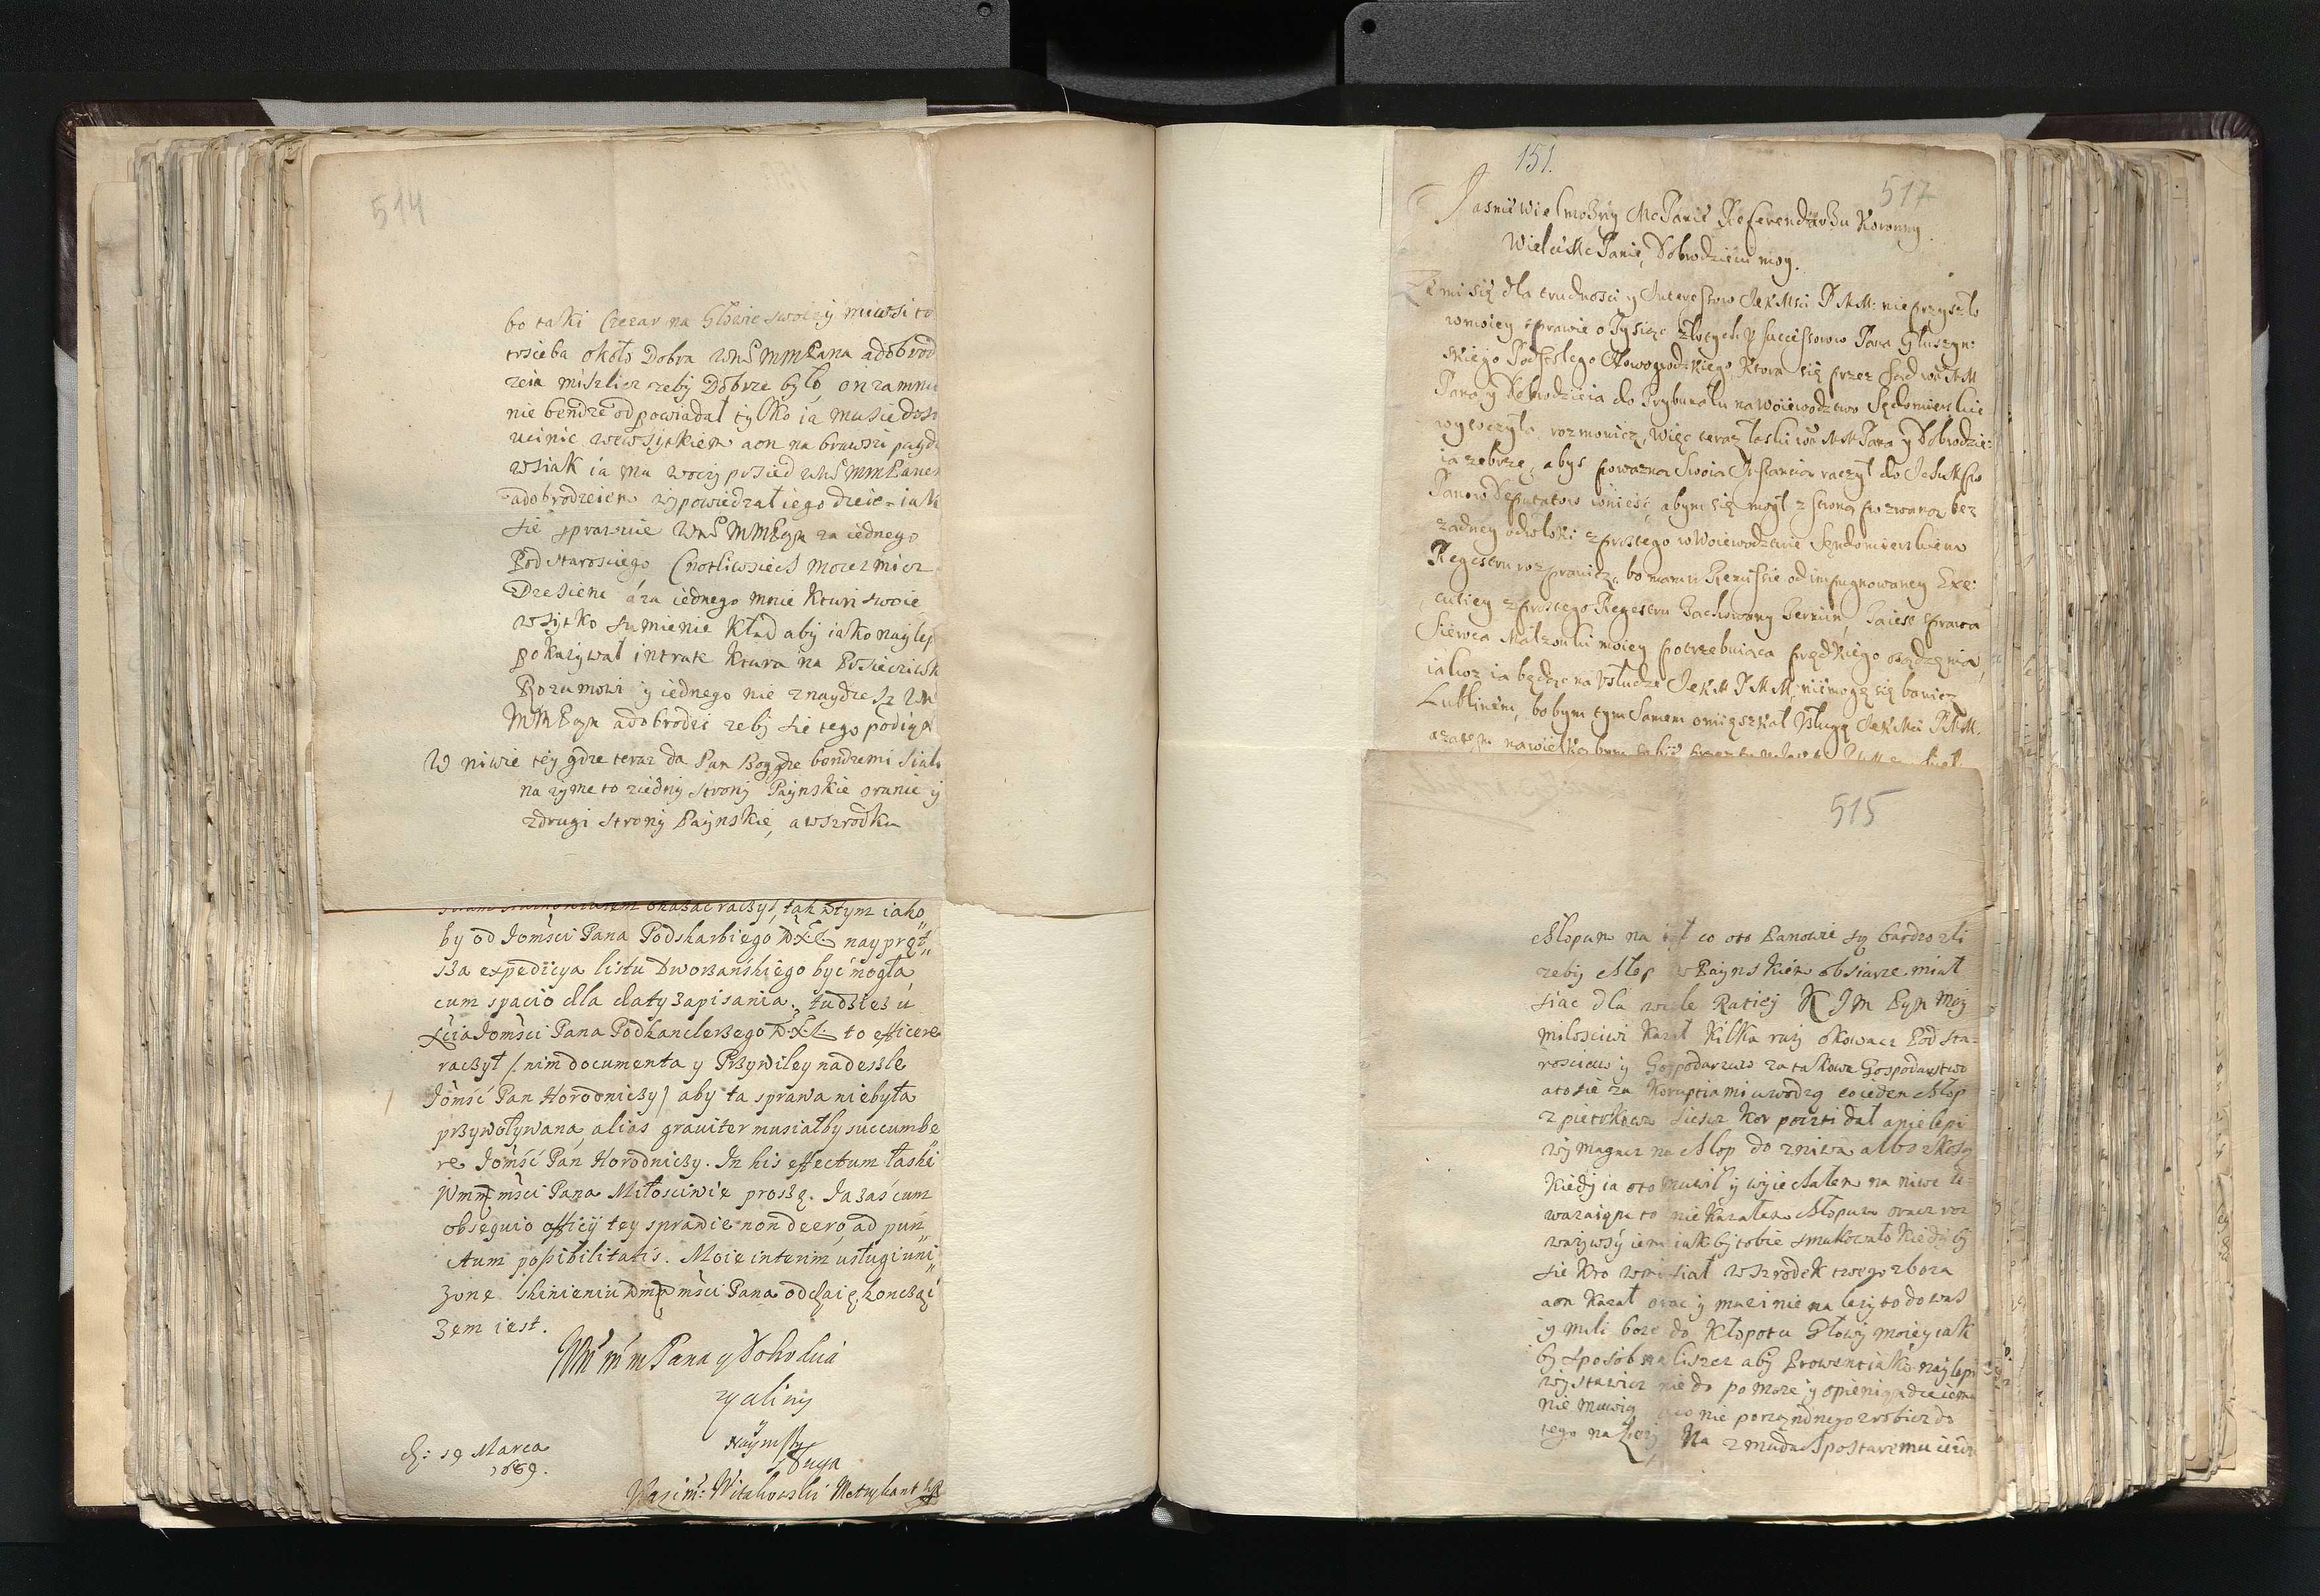 514
bo taki Cezar na Głowie swoiey miewsi to
trzeba około Dobra WMS MMPana adobrod
zeia miszlicz zebÿ Dobrze było, on zamnie
nie bendze odpowiadał tÿlko ia musie dosi
ucinic wewsÿtkiem aon na
wsiak ia mu woczÿ WMS MMPanem
adobrodzeiem wÿpowiedzał iego dzeie iak
sie sprawuie WMS MMPan za iednego
Podstarosciego Cnotliwsiech mocz miecz
Dzesieni á za iednego mnie Kturi swoie
wsÿtko sumienie Kład abÿ iako naÿlep
pokazÿwał intrate Ktura na
Rozumowi ÿ iednego nie znaÿdzesz WM
MMPan adobrodzi zebÿ sie tego podiÿł
W niwie teÿ gdze teraz da Pan Bog że bendzemi siali
na zÿme to ziednÿ stronÿ Paÿnskie oranie ÿ
zdrugi stronÿ Paÿnskie, awszrodku
okazac raczył, tak wtym iako
by od Jomści Pana Podskarbiego W.X.L. naypręt
sza expedicya listu Dworzańskiego być mogła,
cum spacio dla daty zapisania; tudzież ú
Xcia Jomści Pana Podkanclerzego W.X.L. to efficere
raczył /nim documenta y Przywiley nadeszle
Jomść Pan Horodniczy/ aby ta sprawa niebyła
przywoływana, alias graviter musiałby succumbe
re Jomść Pan Horodniczy. In his effectum łaski
Wmm mści Pana Miłosciwie proszę. Ja zaś cum
obsequio officij tey sprawie non deero, ad pun
ctum possibilitatis. Moie interim usługi uni
żone skinieniu Wmm mści Pana oddaię, kończąc
żem iest.
Wm m m Pana y Dobrodzieia
zyczliwy
Nayniższy
Sługa
d: 19 Marca
1669.
Kazim: Witakowski Metrykant
151.
517
Jasnie Wielmożny Mc Panie Referendarzu Koronny
Wielce Mc Panie, Dobrodzieiu moy.
Ze mi się dla trudnosci y Interessow JeKMsci PMM: nie przyszło
wmoiey sprawie o Tysiąc złotych z Successorow Pana Głuszyn:
skiego Podsedka Nowogrodzkiego, Ktora się przez Sąd WMMM
Pana y Dobrodzieia do Trybunału na Woiewodztwo Sędomierskie
wytoczyła, rozmowicz, Więc teraz łaski WMMM Pana y Dobrodzie:
ia zebrzę, abys powazną Swoią Instancią raczył do
Panow Deputatow wnieść, abym się mogł z stroną pozwaną bez
zadney odwłoki z prostego w Woiewodztwie Sędomierskiem
Regestru rozprawicz, bo mam w Remissie od impugnowaney Exe:
cutiey z prostego Regestru Zachowany Termin, Ja iest sprawa
Sierca Małżonki moiey potrzebuiąca prędkiego osądzenia,
iakoż ia będąc na Vsłudze JeKM PMM niemogę się bawicz
Lublinem, bo bym tym Samem omięszkał Vsługę JeKMci PMM.
515
chłopum na co oto Panowie są bardzo zli
zebÿ chłop w Paÿnskiem obsiarze miał
siac dla wiele Racieÿ K JM Pÿn Moÿ
miłosciwi Kazał Kilka razÿ okowacz Podsta=
rosciew ÿ Gospodarzuw za takowe Gospodarstwo
atosie za Koruptiami uwodzą co ieden chłop
z pietrkowa siesz Kor poczti dał a nielepi
wÿmagacz na chłop do zniwa albo z kosą
Kiedÿ ia oto muwił ÿ wÿiechałem na niwe u=
wazaiąn to nie kazałem chłopum oracz roz
wazÿwsÿ iem iak bÿ tobie smakowało Kiedÿ bÿ
sie kto wmisiał wszrodek twego zboza
aon Kazał orac ÿ muzi nie na lezÿ to do was
ÿ mili boze do Kłopotu Głowÿ moieÿ iak
bÿ sposob naliszcz abÿ Prowent iako naÿlepi
wÿstawicz nie do pomoze ÿ opieniąndze iemu
nie muwią aco nie porzandnego zrobicz do
tego nalezÿ. Na zmudach postaremu